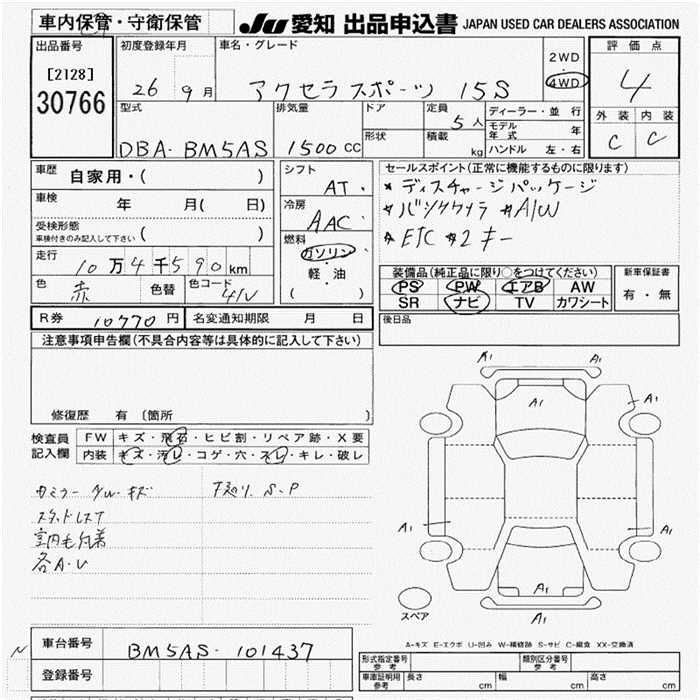 車内保管・守衛保管
JU 愛知 出品申込書 JAPAN USED CAR DEALERS ASSOCIATION
出品番号
[2128]
30766
初度登録年月
26 9月
車名・グレード
アクセラスポーツ 15S
2WD
・
4WD
評価点
4
外装 内装
C C
型式
DBA-BM5AS
排気量
1500 CC
ドア
形状
定員
5人
積載
kg
ディーラー・並行
モデル年式 年
ハンドル 左・右
車歴
自家用・( )
車検 年 月( 日)
受検形態
車検付きのみ記入して下さい ( )
走行
10万4千590km
色
赤
色替
色コード
41V
シフト
AT・
冷房
AAC
燃料
ガソリン
・
軽・油
( )
セールスポイント(正常に機能するものに限ります)
* ディスチャージパッケージ
* バックカメラ * A/W
* ETC * 2キー
装備品(純正品に限り○をつけてください)
PS PW エアB AW
SR ナビ TV カワシート
新車保証書
有・無
R券 10770円 名変通知期限 月 日
後日品
注意事項申告欄(不具合内容等は具体的に記入して下さい)
修復歴 有〔箇所 〕
検査員
記入欄
FW キズ・飛石・ヒビ割・リペア跡・X要
内装 キズ・汚レ・コゲ・穴・スレ・キレ・破レ
下廻リ S.P
各A.U
A1
A1
A1
A1
A1
A1
A1
A1
スペア
A-キズ E-エクボ U-凹み W-補修跡 S-サビ C-腐食 XX-交換済
車台番号 BM5AS-101437
登録番号
N
形式指定番号
参考
類別区分番号
参考
車庫証明用
参考
長さ cm 幅 cm 高さ cm